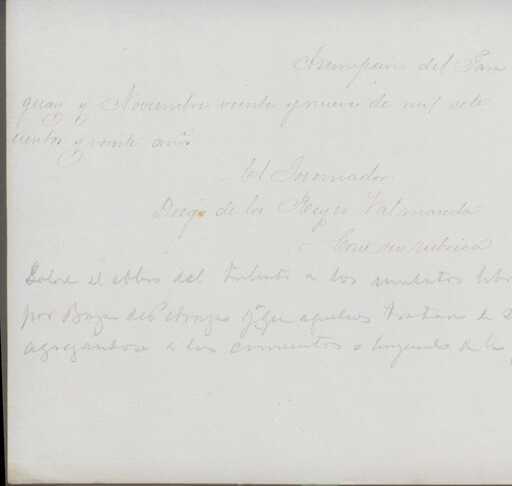 Asumpcion del Para
guay y Noviembre veinte y nueve de mil sete
cientos y veinte años
El Governador
Diego de los Reyes Valmaceda
Con su rubrica
Sobre el cobro del tributo a los mulatos libr
por Bazan de Pedraza y que aquellos tratan de
agregandose a los conventos o huyendo de la